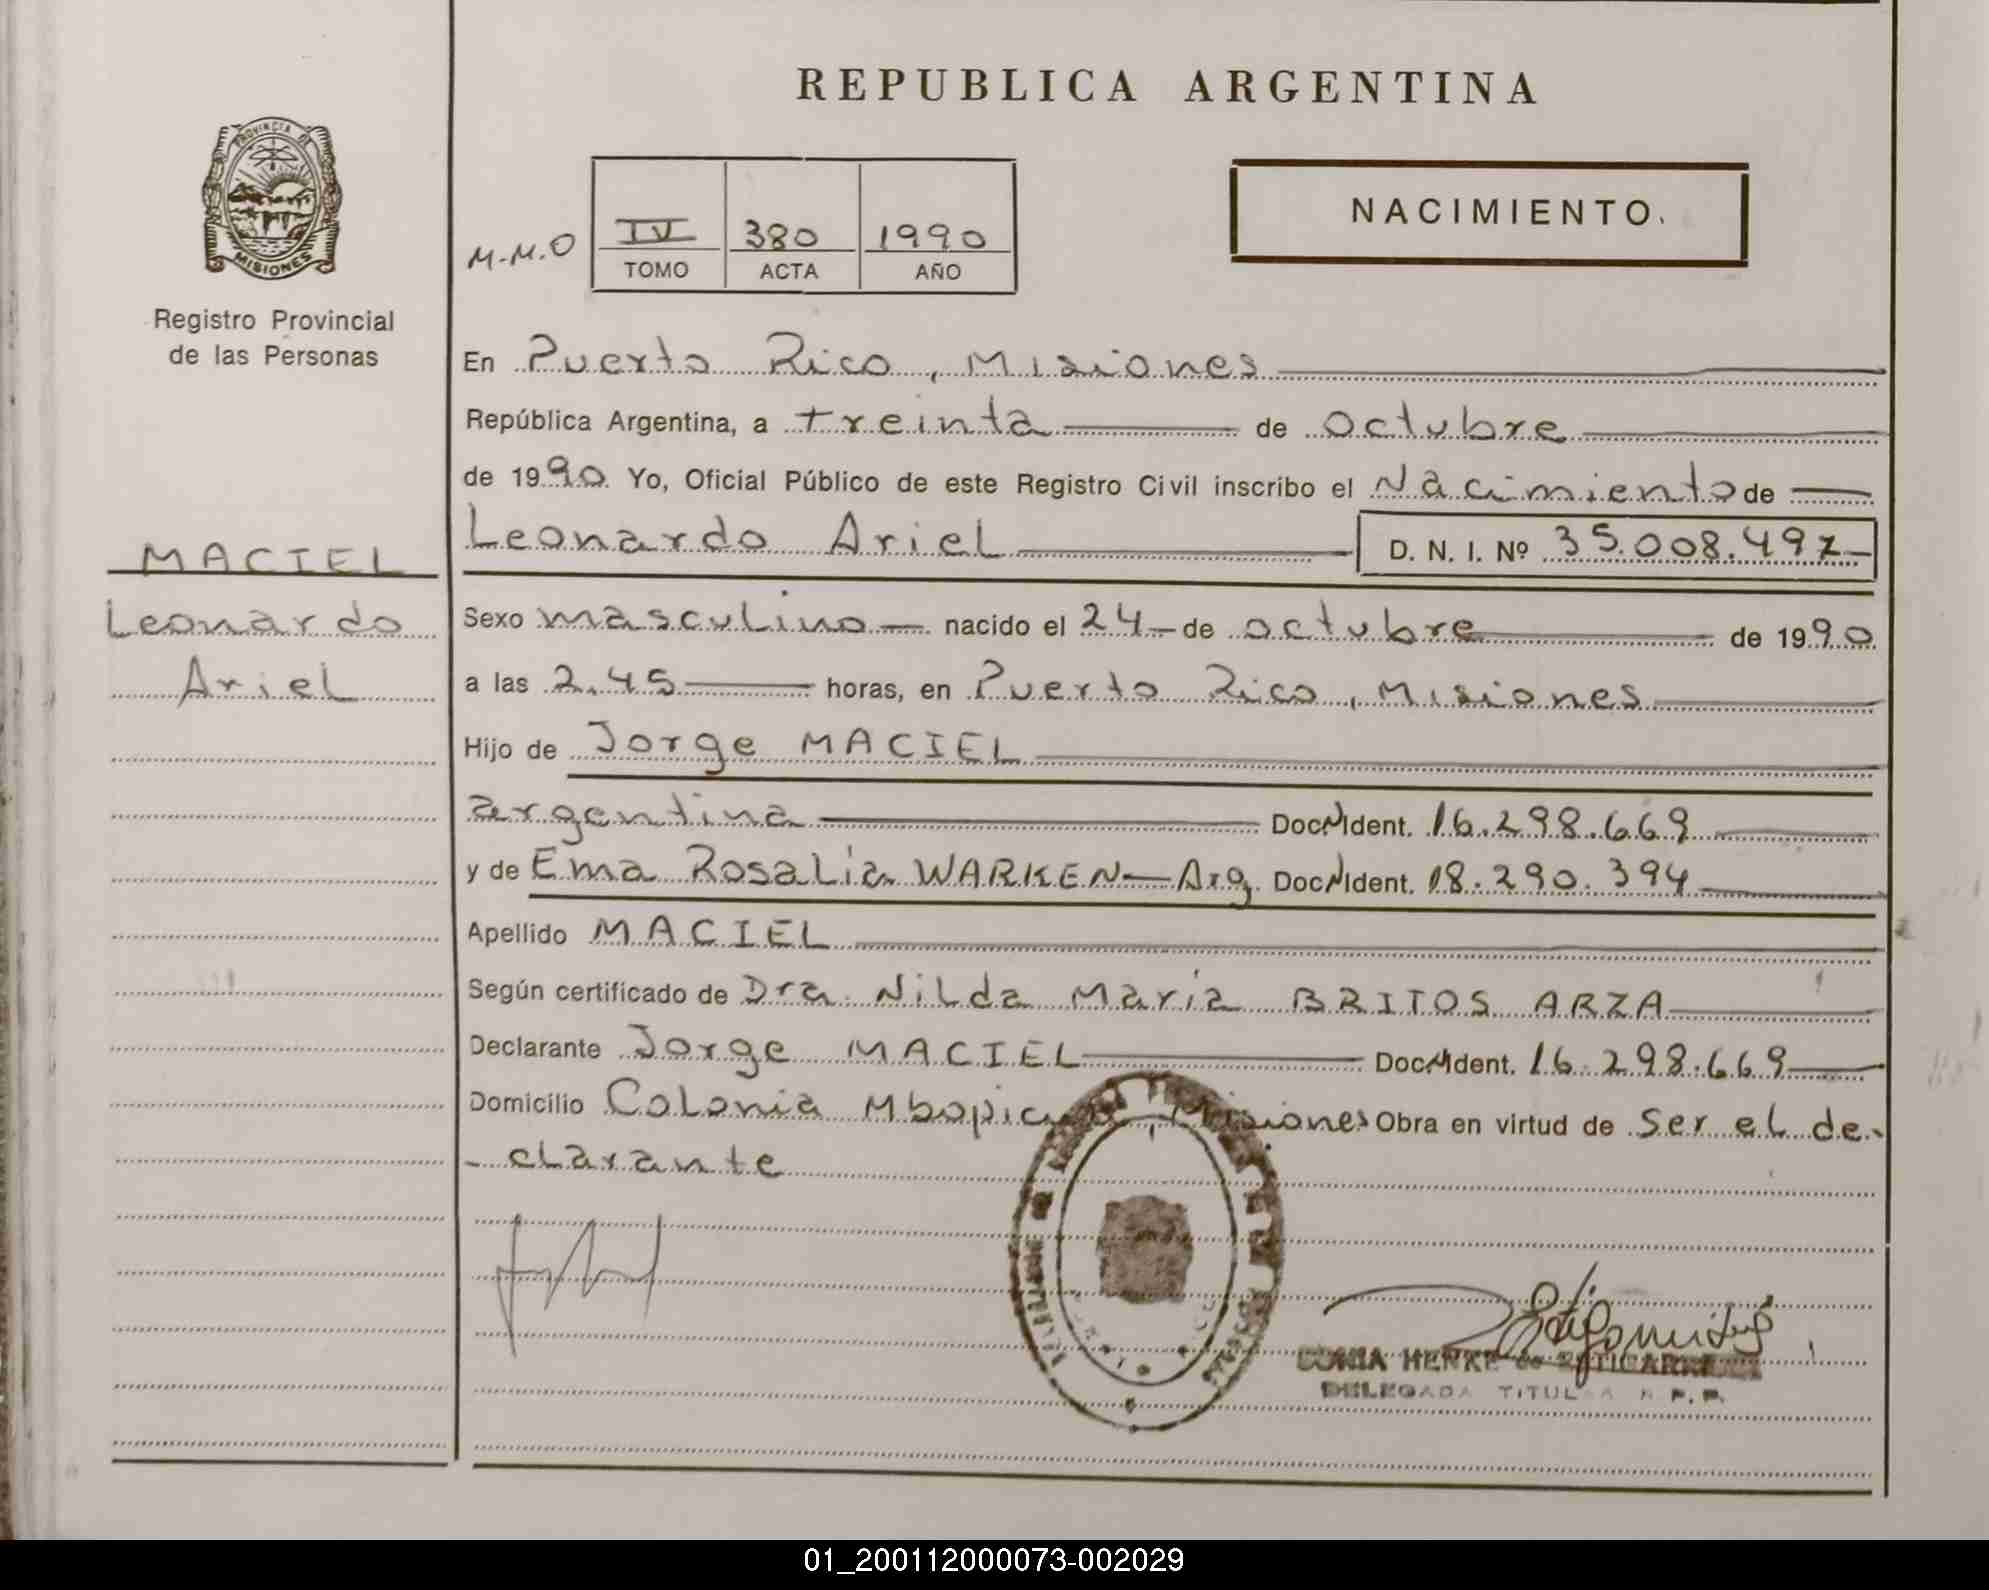 REPUBLICA ARGENTINA
PROVINCIA DE
MISIONES
Registro Provincial
de las Personas
M.M.O
IV 380 1990
TOMO ACTA AÑO
NACIMIENTO.
En Puerto Rico, Misiones
República Argentina, a treinta de octubre
de 1990 Yo, Oficial Público de este Registro Civil inscribo el Nacimiento de
Leonardo Ariel D. N. I. Nº 35.008.497
MACIEL
Leonardo
Ariel
Sexo masculino nacido el 24 de octubre de 1990
a las 2.45 horas, en Puerto Rico, Misiones
Hijo de Jorge MACIEL
argentina Doc N Ident. 16.298.669
y de Ema Rosalia WARKEN Arg. Doc N Ident. 18.290.394
Apellido MACIEL
Según certificado de Dra. Nilda María BRITOS ARZA
Declarante Jorge MACIEL Doc N Ident. 16.298.669
Domicilio Colonia Misiones Obra en virtud de ser el de-
-clarante
SONIA HENKE de
DELEGADA TITULAR R.P.P.
01_200112000073-002029